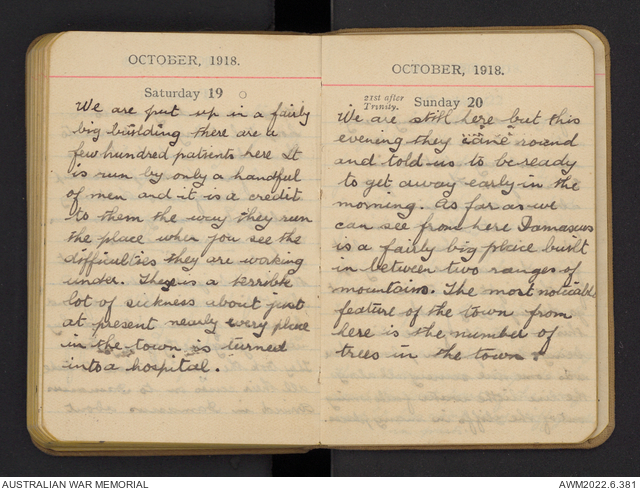 OCTOBER, 1918.
Saturday 19
We are put up in a fairly
big building there are a
few hundred patients here It
is run by only a handful
of men and it is a credit
to them the way they run
the place when you see the
difficulties they are working
under. There is a terrible
lot of sickness about just
at present nearly every place
in the town is turned
into a hospital.
OCTOBER, 1918.
21st after Trinity. Sunday 20
We are still here but this
evening they came round
and told us to be ready
to get away early in the
morning. As far as we
can see from here Damascus
is a fairly big place built
in between two ranges of
mountains. The most noticable
feature of the town from
here is the number of
trees in the town.
AUSTRALIAN WAR MEMORIAL
AWM2022.6.381